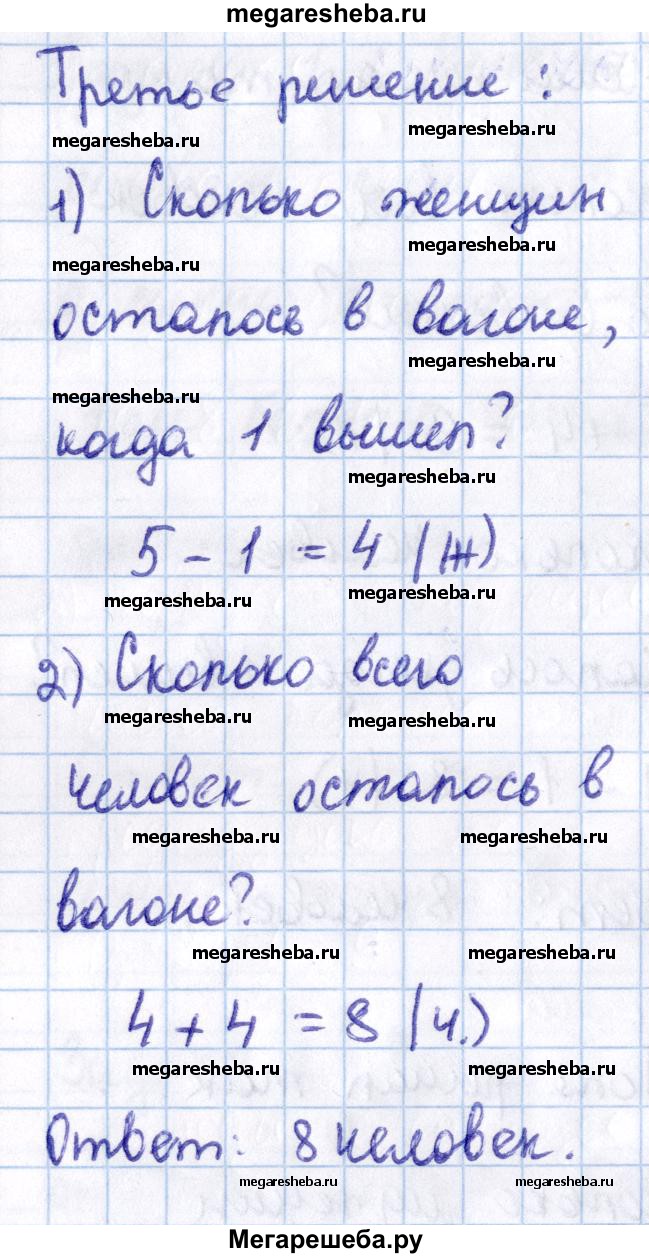 megaresheba.ru
Третье решение:
megaresheba.ru megaresheba.ru
1) Сколько женщин
megaresheba.ru megaresheba.ru
осталось в вагоне,
megaresheba.ru megaresheba.ru
когда 1 вышел?
megaresheba.ru
5 - 1 = 4 (ж)
megaresheba.ru megaresheba.ru
2) Сколько всего
megaresheba.ru megaresheba.ru
человек осталось в
megaresheba.ru megaresheba.ru
вагоне?
megaresheba.ru megaresheba.ru
4 + 4 = 8 (ч.)
megaresheba.ru megaresheba.ru
Ответ: 8 человек.
megaresheba.ru megaresheba.ru
Мегарешеба.ру